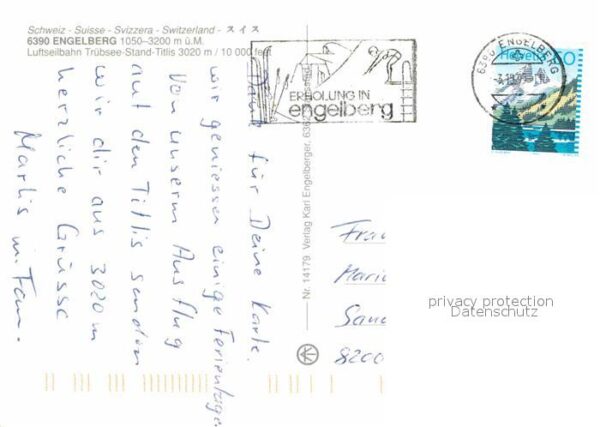 Schweiz - Suisse - Svizzera - Switzerland - スイス
6390 ENGELBERG 1050–3200 m ü.M.
Luftseilbahn Trübsee-Stand-Titlis 3020 m / 10 000 feet
ERHOLUNG IN
engelberg
6390 ENGELBERG
Helvetia
Dank für Deine Karte.
wir geniessen einige Ferientage
Von unserm Ausflug
auf den Titlis senden
wir dir aus 3020 m
herzliche Grüsse
Marlis m. Fam.
Nr. 14179 Verlag Karl Engelberger, 636
Frau
Mari
San
8200
privacy protection
Datenschutz